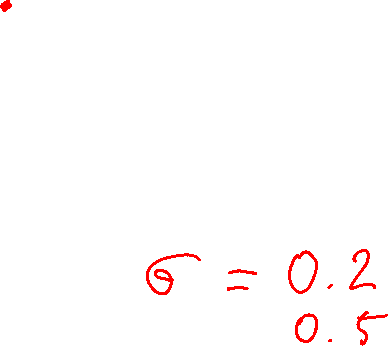 σ = 0.2
0.5